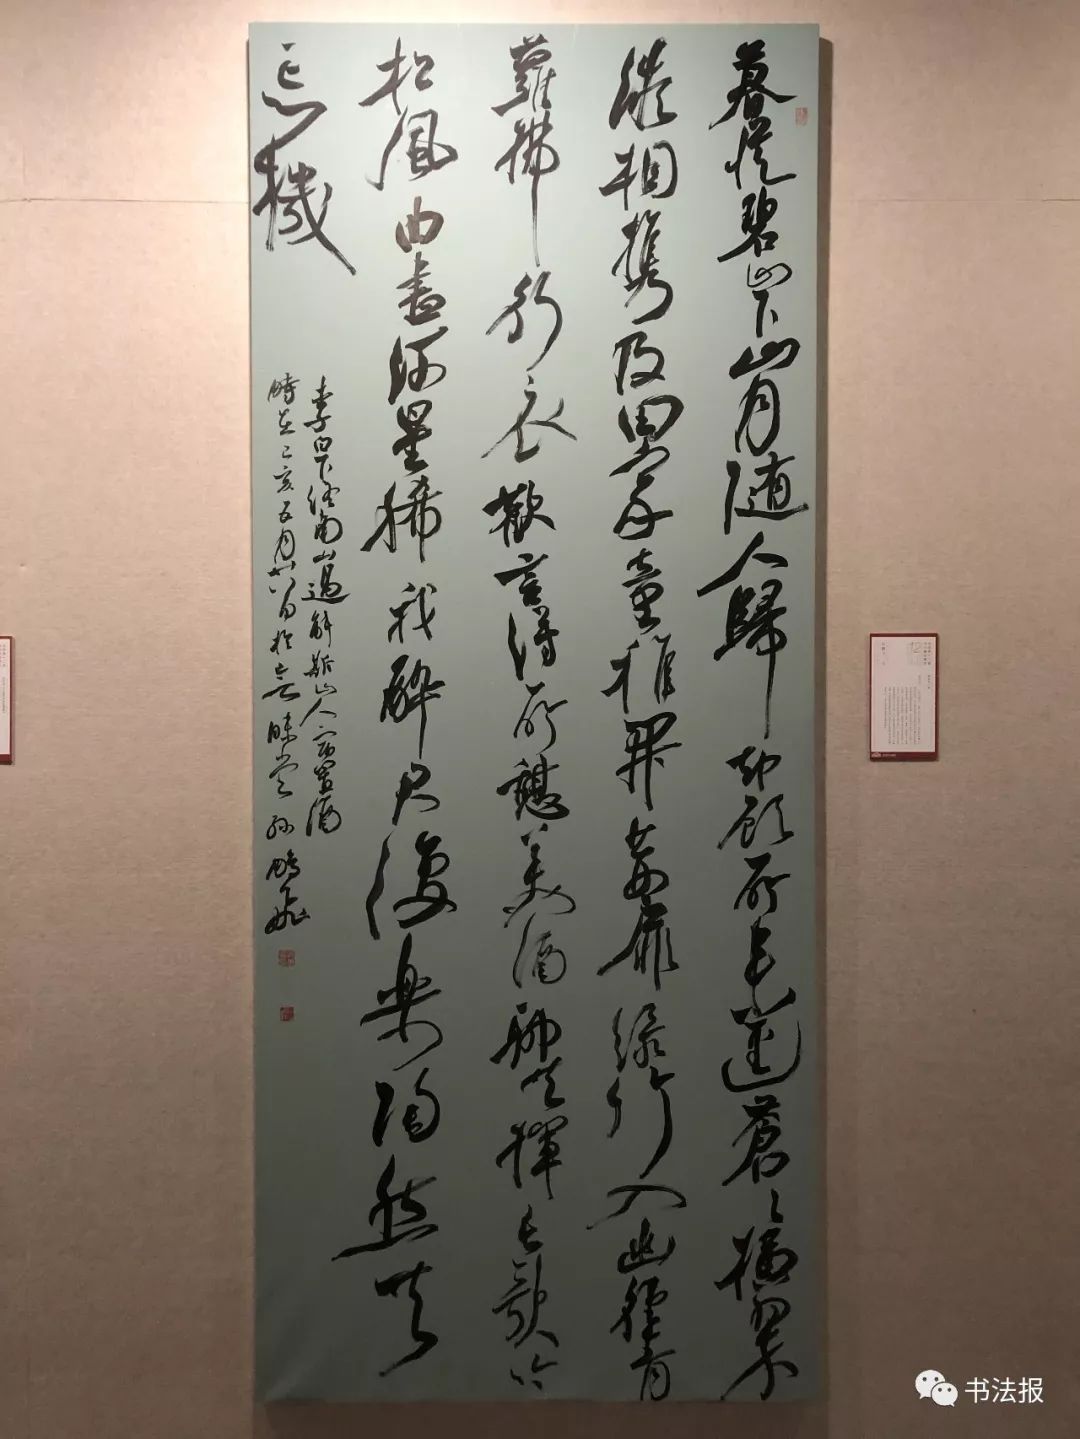 暮從碧山下山月随人歸却顧所来逕蒼々橫翠
微相携及田家童稚開荊扉綠竹入幽徑青
蘿拂行衣歡言得所憩美酒聊共揮長歌吟
松風曲盡河星稀我醉君復樂陶然共
忘機
李白下終南山過斛斯山人宿置酒
時在己亥五月日於昧堂孫鵬飛
书法报